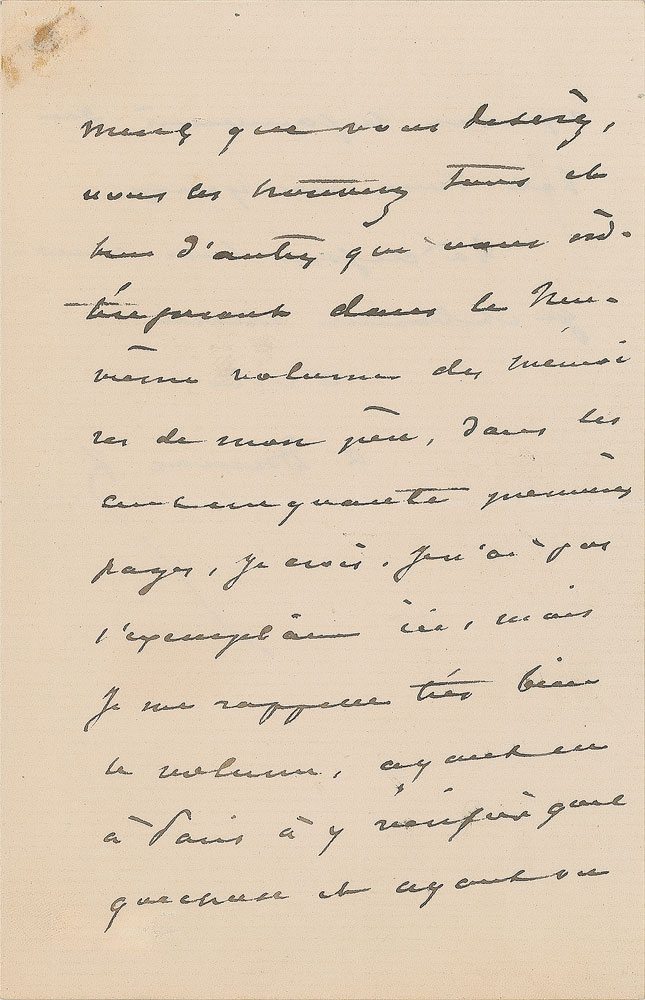 que vous desirez,
vous les trouverez tous et
bien d'autres que vous in-
téressent dans le neu-
vième volume des mémoi
res de mon père, dans les
cinquante premières
pages, je crois. Je n'ai pas
l'exemplaire ici, mais
Je me rappelle très bien
le volume, ayant eu
à Paris à y vérifier quel
que chose et ayant vu